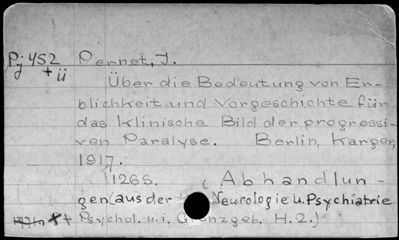 Pj 452 Pernet, J.
+ü
Über die Bedeutung von Er-
blichkeit und Vorgeschichte für
das klinische Bild der progressi-
ven Paralyse. Berlin, Karger,
1917.
126S. (Abhandlun-
gen aus der Neurologie u. Psychiatrie
Psychol. u. i. Grenzgeb. H. 2.)